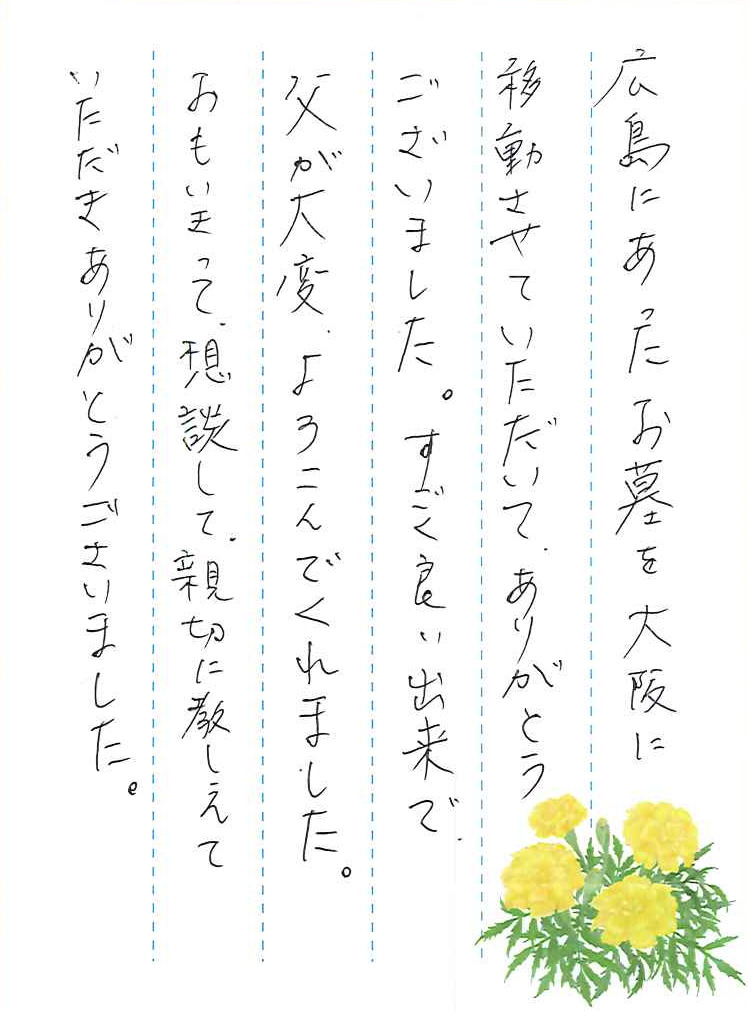 広島にあったお墓を大阪に
移動させていただいて、ありがとう
ございました。すごく良い出来で、
父が大変、よろこんでくれました。
おもいきって、想談して、親切に教しえて
いただきありがとうございました。